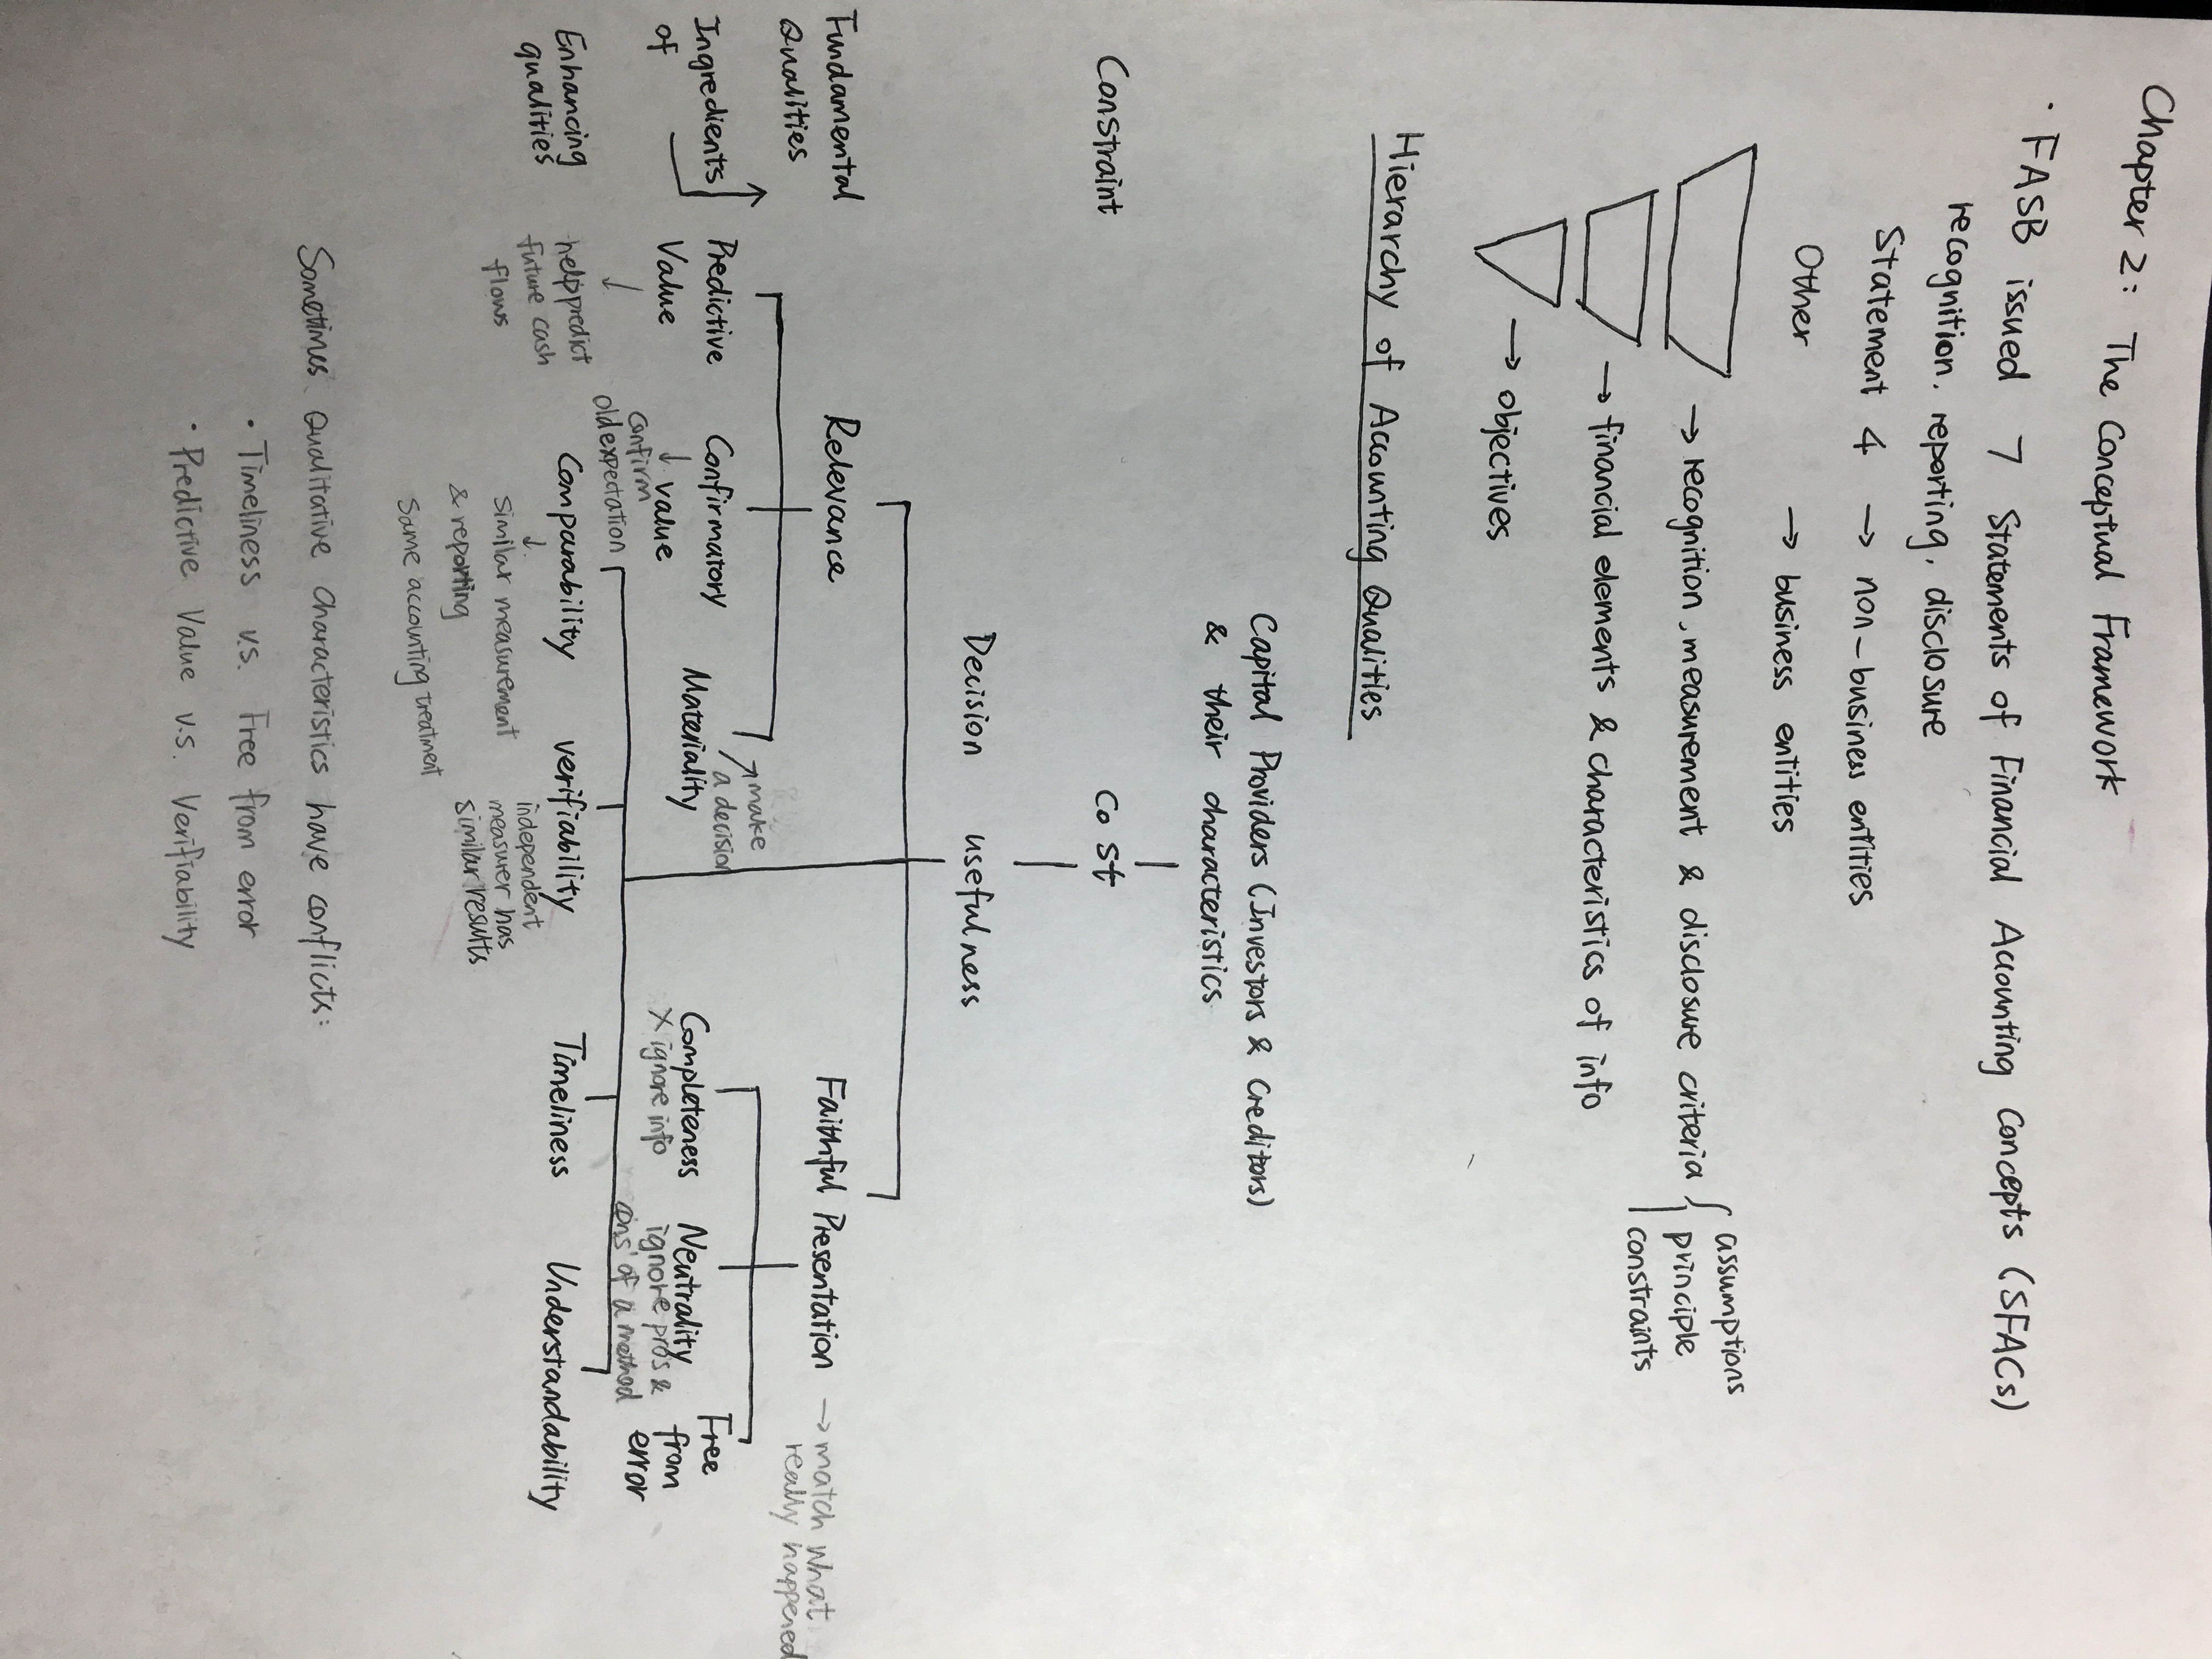 Chapter 2: The Conceptual Framework
· FASB issued 7 Statements of Financial Accounting Concepts (SFACs)
recognition, reporting, disclosure
Statement 4 → non-business entities
Other → business entities
→ recognition, measurement & disclosure criteria { assumptions
principle
constraints
→ financial elements & characteristics of info
→ objectives
Hierarchy of Accounting Qualities
Capital Providers (Investors & Creditors)
& their characteristics
Constraint Cost
Decision usefulness
Fundamental Qualities
Relevance
Faithful Presentation → match what
really happened
Ingredients of
Predictive Value
↓
help predict
future cash
flows
Confirmatory value
↓
confirm
old expectation
Materiality
↗ make
a decision
Completeness
X ignore info
Neutrality
ignore pros &
cons of a method
Free from error
Enhancing qualities
Comparability
↓
similar measurement
& reporting
same accounting treatment
verifiability
independent
measurer has
similar results
Timeliness
Understandability
Sometimes Qualitative characteristics have conflicts:
· Timeliness v.s. Free from error
· Predictive Value v.s. Verifiability